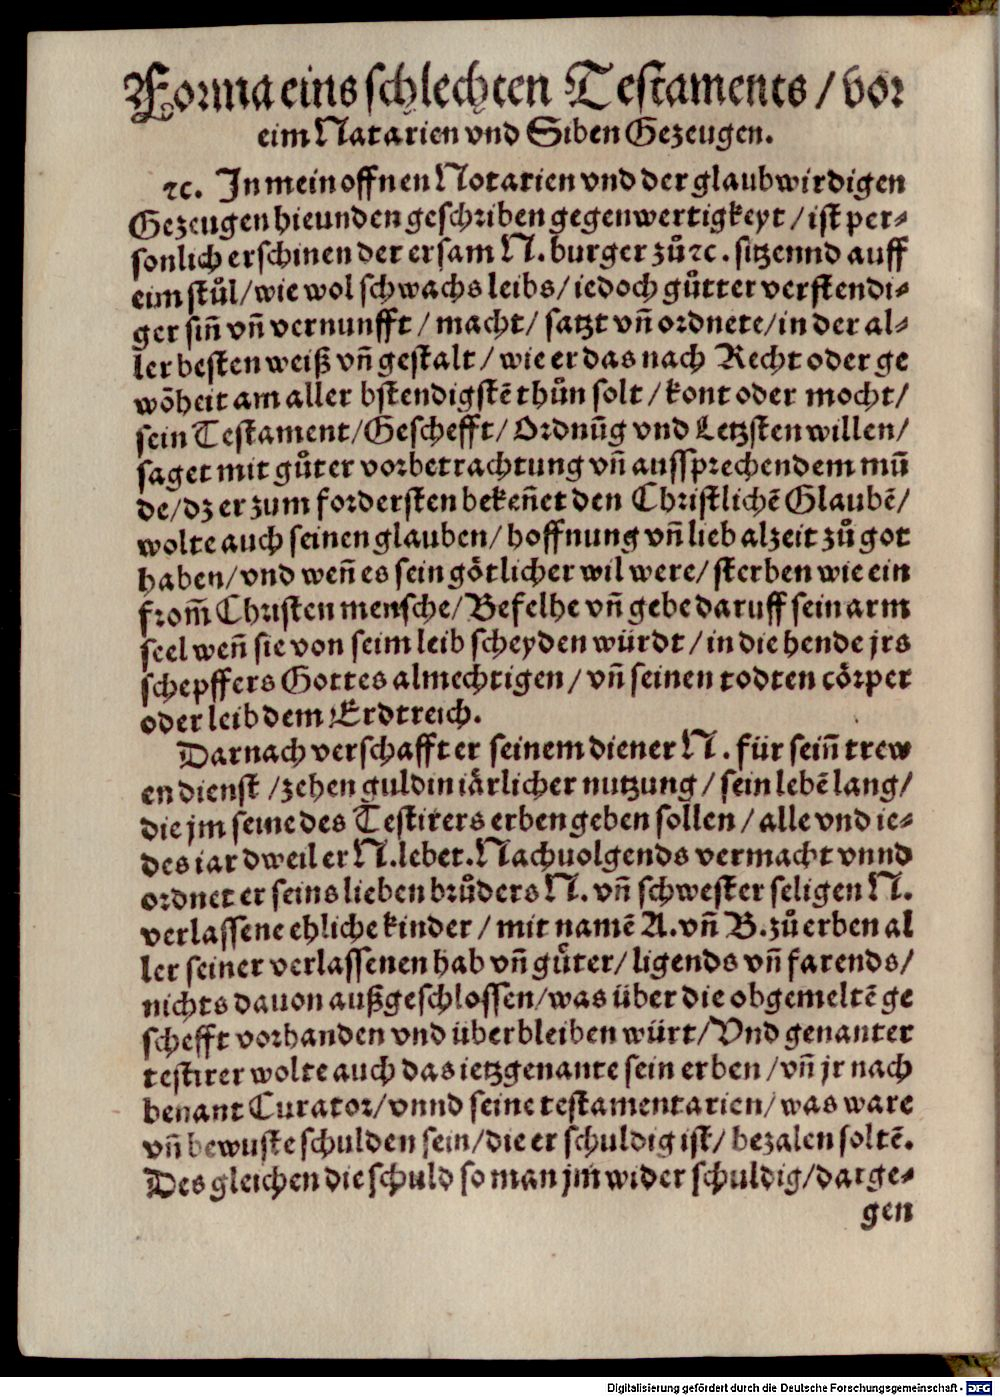 Forma eins schlechten Testaments / vor
eim Natarien vnd Siben Gezeugen.
ꝛc. In mein offnen Notarien vnd der glaubwirdigen
Gezeugen hieunden geschriben gegenwertigkeyt / ist per⸗
sonlich erschinen der ersam N. burger zů ꝛc. sitzennd auff
eim stůl / wie wol schwachs leibs / iedoch gůtter verstendi⸗
ger siñ vñ vernunfft / macht / satzt vñ ordnete / in der al⸗
ler besten weiß vñ gestalt / wie er das nach Recht oder ge
wõheit am aller bstendigstẽ thůn solt / kont oder mocht /
sein Testament / Geschefft / Ordnũg vnd Letzsten willen /
saget mit gůter vorbetrachtung vñ aussprechendem mũ
de / dz er zum fordersten bekeñet den Christlichẽ Glaubẽ /
wolte auch seinen glauben / hoffnung vñ lieb alzeit zů got
haben / vnd weñ es sein götlicher wil were / sterben wie ein
from̃ Christen mensche / Befelhe vñ gebe daruff sein arm
seel weñ sie von seim leib scheyden würdt / in die hende jrs
schepffers Gottes almechtigen / vñ seinen todten cörper
oder leib dem Erdtreich.
Darnach verschafft er seinem diener N. für seiñ trew
en dienst / zehen guldin iärlicher nutzung / sein lebẽ lang /
die jm seine des Testirers erben geben sollen / alle vnd ie⸗
des iar dweil er N. lebet. Nachuolgends vermacht vnnd
ordnet er seins lieben brůders N. vñ schwester seligen N.
verlassene ehliche kinder / mit namẽ A. vñ B. zů erben al
ler seiner verlassenen hab vñ gůter / ligends vñ farends /
nichts dauon außgeschlossen / was über die obgemeltẽ ge
schefft vorhanden vnd überbleiben würt / Vnd genanter
testirer wolte auch das ietzgenante sein erben / vñ jr nach
benant Curator / vnnd seine testamentarien / was ware
vñ bewuste schulden sein / die er schuldig ist / bezalen soltẽ.
Des gleichen die schuld so man jm wider schuldig / darge⸗
gen
Digitalisierung gefördert durch die Deutsche Forschungsgemeinschaft - DFG